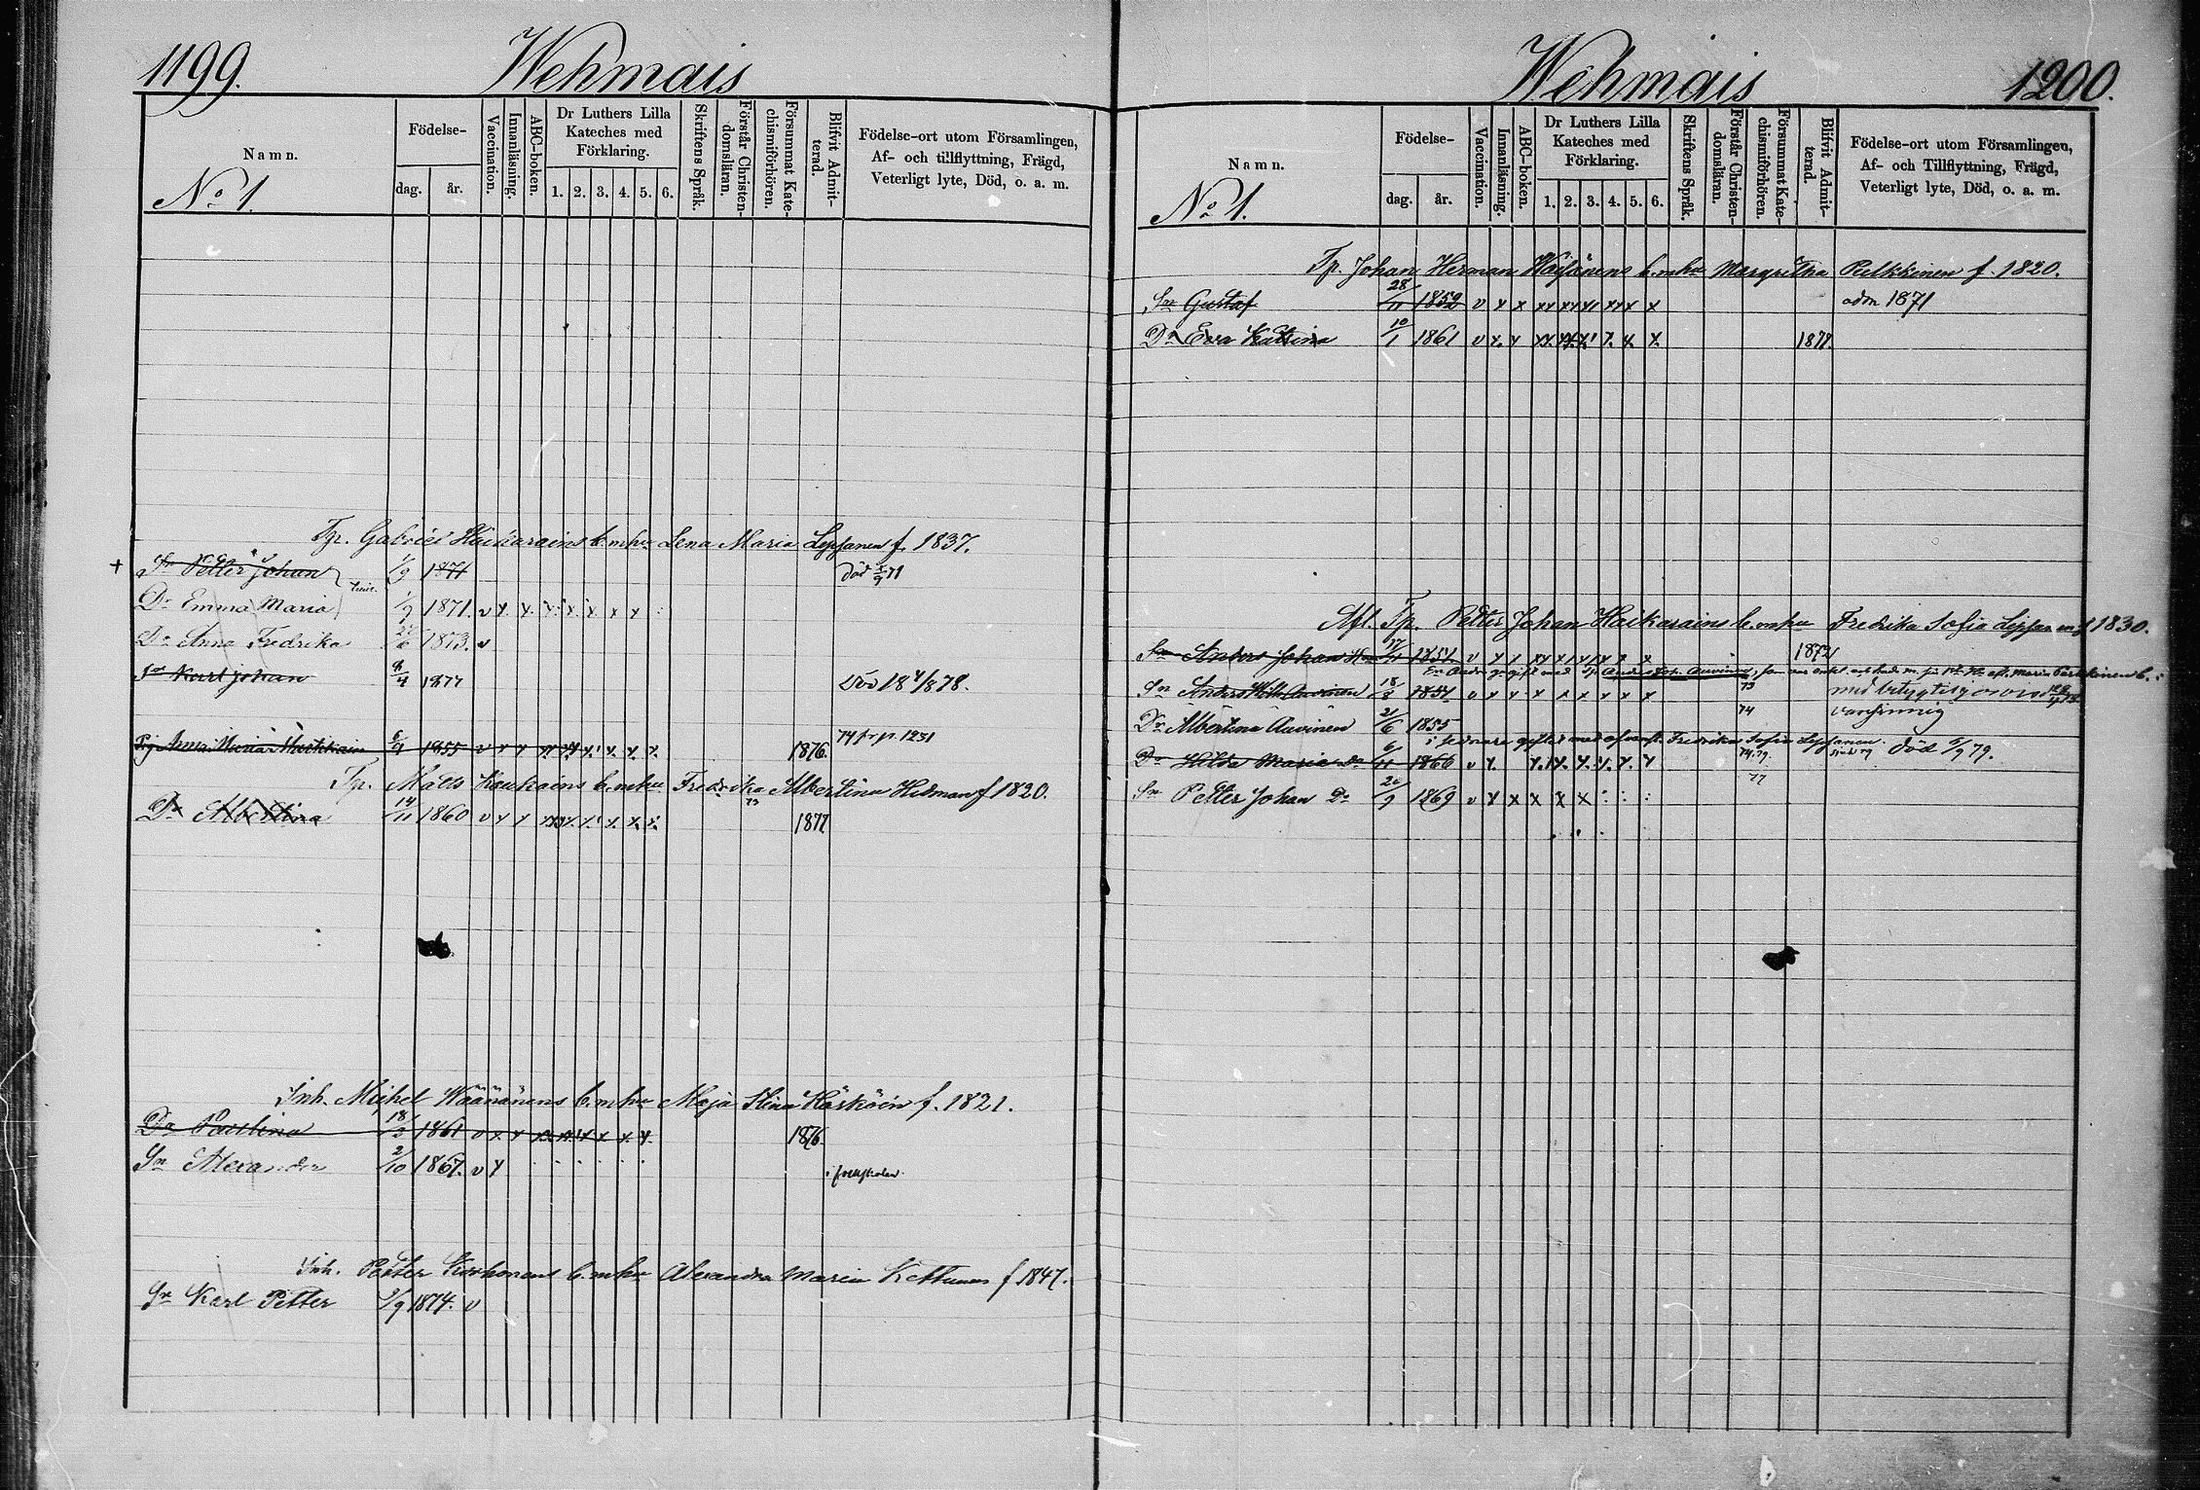 1199.
Wehmais
Namn.
No 1.
Födelse-
dag.
år.
Vaccination.
Innanläsning.
ABC-boken.
Dr Luthers Lilla
Kateches med
Förklaring.
1. 2. 3. 4. 5. 6.
Skriftens Språk.
Förstår Christen-
domsläran.
Försummat Kate-
chismiförhören.
Blifvit Admit-
terad.
Födelse-ort utom Församlingen,
Af- och tillflyttning, Frägd,
Veterligt lyte, Död, o. a. m.
Tp. Gabriel Haikarains b. m hu Lena Maria Leppänen f. 1837.
+ Sn Petter Johan 1/9 1871 död 71
Dr Emma Maria 1/9 1871. v x x x x x x x
Dr Anna Fredrika 27/6 1873. v
Sn Karl Johan 9/4 1877 död 18 4/8 78.
Pig Anna Maria 1855 v x x 1876. 74 fr. p. 1251
Tp. Matts Koukains b. m hu Fredrika Albertina Hedman f 1820.
Dr Albertina 14/11 1860 v x x 1877
Inh. Mihel Wäänänens b. m hu Maja Stina Härköin f. 1821.
Dr Paulina 18/3 1861 v x x 1876.
Sn Alexander 2/10 1867. v x i folkskolan.
Inh. Petter Korhonens b. m hu Alexandra Maria Kettunen f 1847.
Sn Karl Petter 1/9 1874. v
Wehmais
1200.
Namn.
No 1.
Födelse-
dag.
år.
Vaccination.
Innanläsning.
ABC-boken.
Dr Luthers Lilla
Kateches med
Förklaring.
1. 2. 3. 4. 5. 6.
Skriftens Språk.
Förstår Christen-
domsläran.
Försummat Kate-
chismiförhören.
Blifvit Admit-
terad.
Födelse-ort utom Församlingen,
Af- och Tillflyttning, Frägd,
Veterligt lyte, Död, o. a. m.
Tp. Johan Herman Häifänens b. m hu Margretha Pulkkinen f. 1820.
Sn Gustaf 28/11 1852 v x x xx xx x x xx x x adm 1871
Dr Eva Katrina 10/1 1861 v x x 1877.
Afl. Tp. Petter Johan Haikarains b. m hu Fredrika Sofia Leppänen f 1830.
Sn Anders Johan 17/11 1851 v x x 1872
Sn Anders Wilh. Auvinen 18/3 1851 v x x x x x x x x 73 med betyg
Dr Albertina Auvinen 21/6 1855 74 vansinnig
i sednare giftet med Fredrika Sofia Leppänen.
Dr Hilda Maria Dr 6/11 1866 v x. x x x x x x 74.79. död 5/9 79.
Sn Petter Johan Dr 20/9 1869 v x x x x x 77